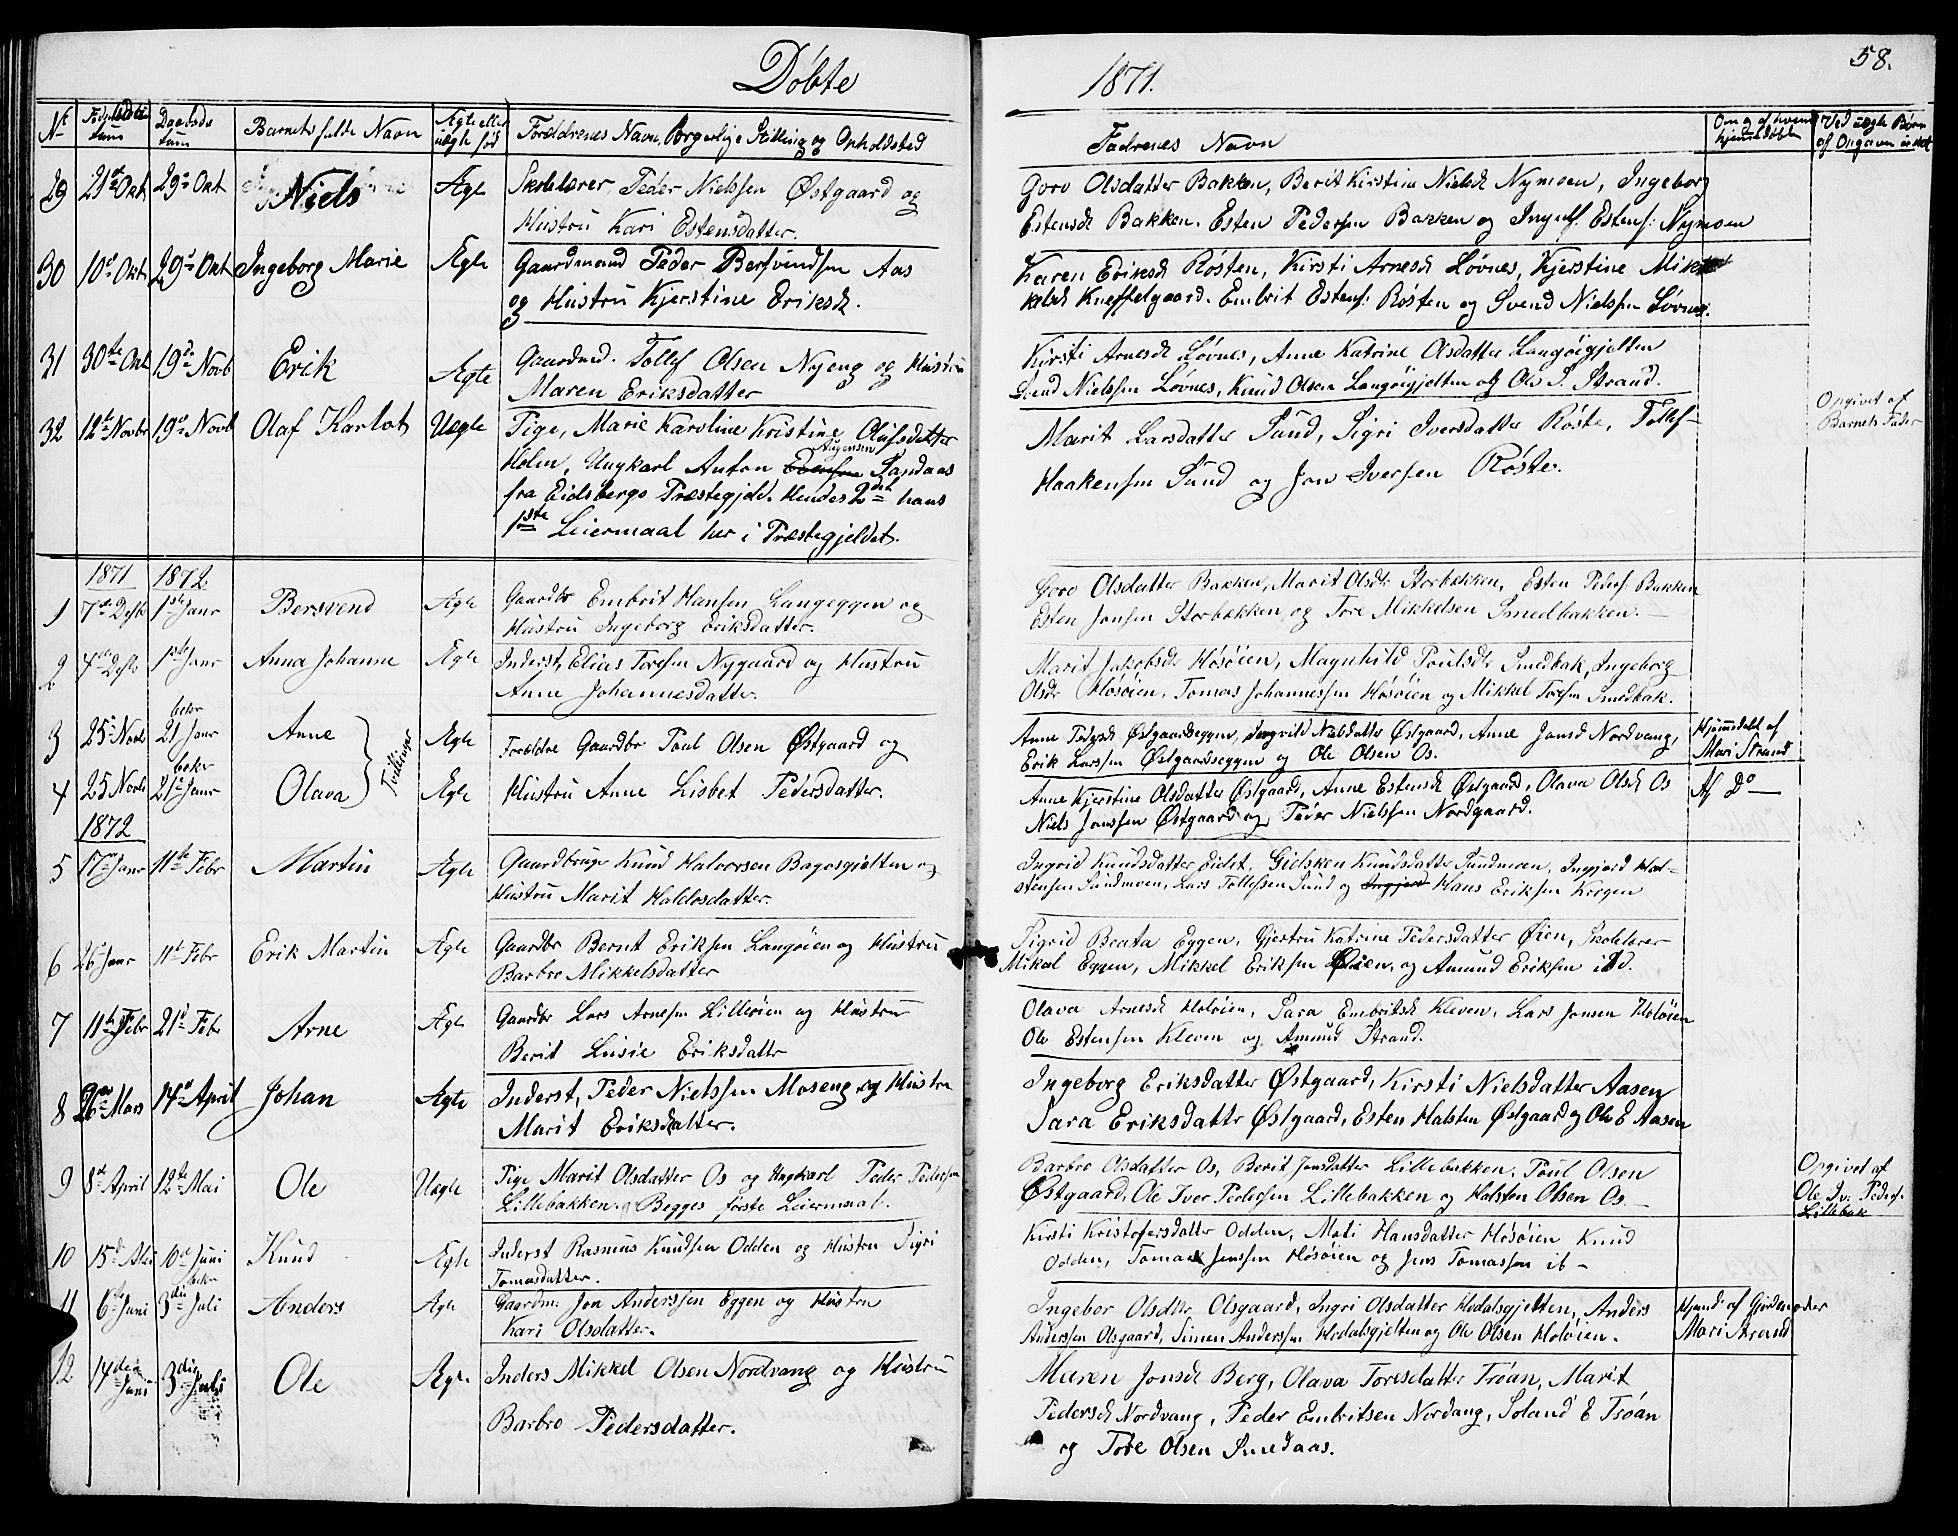 Döbte
1871.
58.
No Fødselsdatum Daabsdatum Barnets fulde Navn Ægte eller uægte fød Forældrenes Navn, borgerlige Stilling og Opholdsted
Fadrenes Navn
Om og af hvem hjemmedøbt
Ved uægte Børn af Opgaven er sket
29 21de Okt 29de Okt Niels Ægte Skolelærer Peder Nielssen Østgaard og
Hustru Kari Estensdatter.
Goro Olsdatter Bakken, Berit Kirstine Nielsd. Nymoen, Ingeborg
Estensd. Bakken. Esten Pedersen Bakken og Ingulf Estens: Nymoen
30 10de Okt 29de Okt Ingeborg Marie Ægte Gaardmand Peder Bersvendsen Aas
og Hustru Kjerstine Eriksd.
Karen Eriksd. Røsten, Kirsti Arnesd. Løvnes, Kjerstine Mik-
kelsd. Kneppelgaard. Embrit Estens: Røsten og Svend Nielssen Løvnes.
31 30te Okt 19de Novb Erik Ægte Gaardmd. Tollef Olsen Nyeng og Hustru
Maren Eriksdatter
Kirsti Arnesd. Løvnes, Anne Katrine Olsdatter Langøigjelten
Svend Nielssen Løvnes, Knud Olsen Langøigjelten og Ole S. Strand.
32 12te Novbr 19de Novb Olaf Karlot Uægte Pige, Marie Karoline Kristine Olufsdatter
Holm, Ungkarl Anton Evensen Sandaas
fra Eidsbergs Præstegjeld. Hendes 2det hans
1ste Leiermaal her i Præstegjeldet.
Marit Larsdatter Sund, Sigri Iversdatter Røste, Tollef
Haakensen Sund og Jon Iversen Røste.
Opgivet af
Barnets Fader
1871 1872.
1 7de Desb 1ste Janr Bersvend Ægte Gaardbr Embrit Hansen Langeggen og
Hustru Ingeborg Eriksdatter.
Goro Olsdatter Bakken, Marit Olsdr Storbækken, Esten Peders: Bakken
Esten Jonsen Storbækken og Tore Mikkelsen Smedbakken.
2 4de Desb 1ste Janr Anna Johanne Ægte Inderst, Elias Toresen Nygaard og Hustru
Anne Johannesdatter.
Marit Jakobsdr Hösöien, Magnhild Poulsdr Smedbak, Ingeborg
Olsdr Hösöien. Tomas Johannessen Hösöien og Mikkel Toresen Smedbak.
3 25de Novb bekr 21 Janr Anne Ægte Forældre Gaardbr Poul Olsen Østgaard og
Anne Pedersd Østgaardseggen, Ingvild Nielsdatter Østgaard, Anne Jonsd Nordvang,
Erik Larssen Østgaardseggen og Ole Olsen Os.
Hjemmedøbt af
Mari Strand
4 25 Novb bekr 21de Janr Olava Tvillinger Ægte Hustru Anne Lisbet Pedersdatter.
Anne Kjerstine Olsdatter Østgaard, Anne Estensd. Østgaard, Olava Olsd. Os
Niels Jonssen Østgaard og Peder Nielssen Nordgaard.
Af Do
1872
5 17de Janr 11te Febr Martin Ægte Gaardbruger Knud Halvorsen Bagosgjelten og
Hustru Marit Haldosdatter.
Ingrid Knudsdatter Eidet, Gidsken Knudsdatter Sundmoen, Ingjerd Hal-
stensen Sundmoen, Lars Tollefssen Sund og Ingjerd Hans Eriksen Krogen
6 26de Janr 11te Febr Erik Martin Ægte Gaardbr Bernt Eriksen Langøien og Hustru
Barbro Mikkelsdatter
Sigrid Beata Eggen, Gjertru Katrine Pedersdatter Øien, Skolelærer
Mikal Eggen, Mikkel Eriksen Øien, og Amund Eriksen ibd.
7 11te Febr 21de Febr Arne Ægte Gaardbr Lars Arnesen Lilleøien og Hustru
Berit Lusie Eriksdattr
Olava Arnesd. Holøien, Sara Embritsd. Kleven, Lars Jonsen Holøien
Ole Estensen Kleven og Amund Strand.
8 26de Mars 14de April Johan Ægte Inderst, Peder Nielssen Moseng og Hustru
Marit Eriksdatter.
Ingeborg Eriksdatter Østgaard, Kirsti Nielsdatter Aasen
Sara Eriksdattr Østgaard, Esten Halsten Østgaard og Ole E Aasen
9 8de April 12te Mai Ole Uægte Pige Marit Olsdatter Os og Ungkarl Peder Pedersen
Lillebakken. Begges første Leiermaal.
Barbro Olsdatter Os, Berit Jonsdatter Lillebakken. Poul Olsen
Østgaard, Ole Iver Pedersen Lillebakken og Halsten Olsen Os.
Opgivet af
Ole Iv: Peders.
Lillebak
10 15de Mai 10de Juni Knud Ægte Inderst Rasmus Knudsen Odden og Hustru Sigri
Tomasdatter.
Kirsti Kristofersdatter Odden, Mati Hansdatter Hösöien Knud
Odden, Tomas Jenssen Hösöien og Jens Tomassen ib
11 6te Juni bekr 3die Juli Anders Ægte Gaardm: Jon Anderssen Eggen og Hustru
Kari Olsdatter.
Ingebor Olsdtr Olsgaard, Ingri Olsdatter Hodalsgjelten, Anders
Anderssen Olsgaard, Simen Anderssen Hodalsgjelten og Ole Olsen Holøien.
Hjemd. af Gjordemoder
Mari Strand
12 14de Juni 3die Juli Ole Ægte Inders Mikkel Olsen Nordvang og Hustru
Barbro Pedersdatter.
Maren Jonsd. Berg, Olava Toresdatter Trøan, Marit
Pedersd Nordvang, Peder Embritsen Nordang, Soland E Trøan
og Tore Olsen Smedaas.